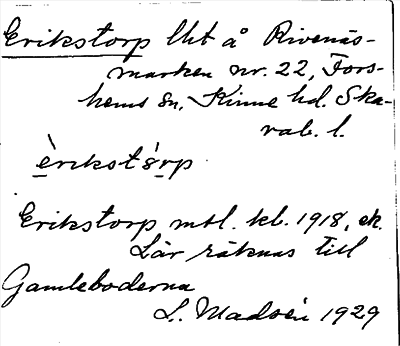 Erikstorp lht å Rivenäs-
marken nr. 22, Fors-
hems sn, Kinne hd. Ska-
rab. l.
èrikstʹårp
Erikstorp mtl. kb. 1918, ek.
Lär räknas till
Gamleboderna
L. Madsén 1929